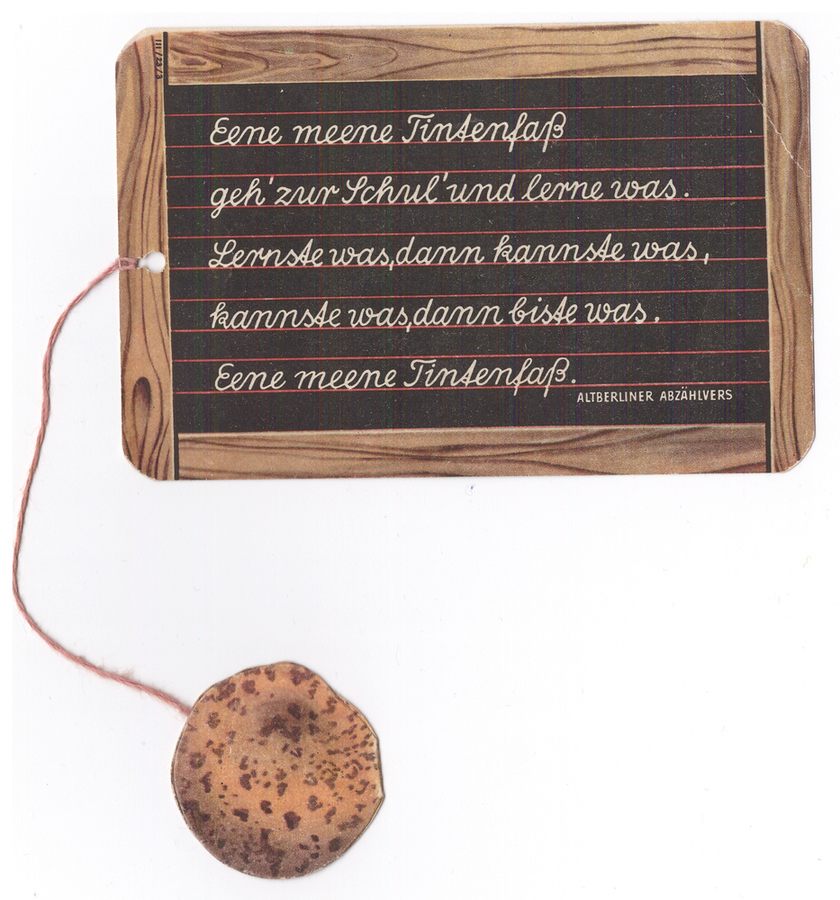 III/23/3
Eene meene Tintenfaß
geh' zur Schul' und lerne was.
Lernste was, dann kannste was,
kannste was, dann biste was.
Eene meene Tintenfaß.
ALTBERLINER ABZÄHLVERS